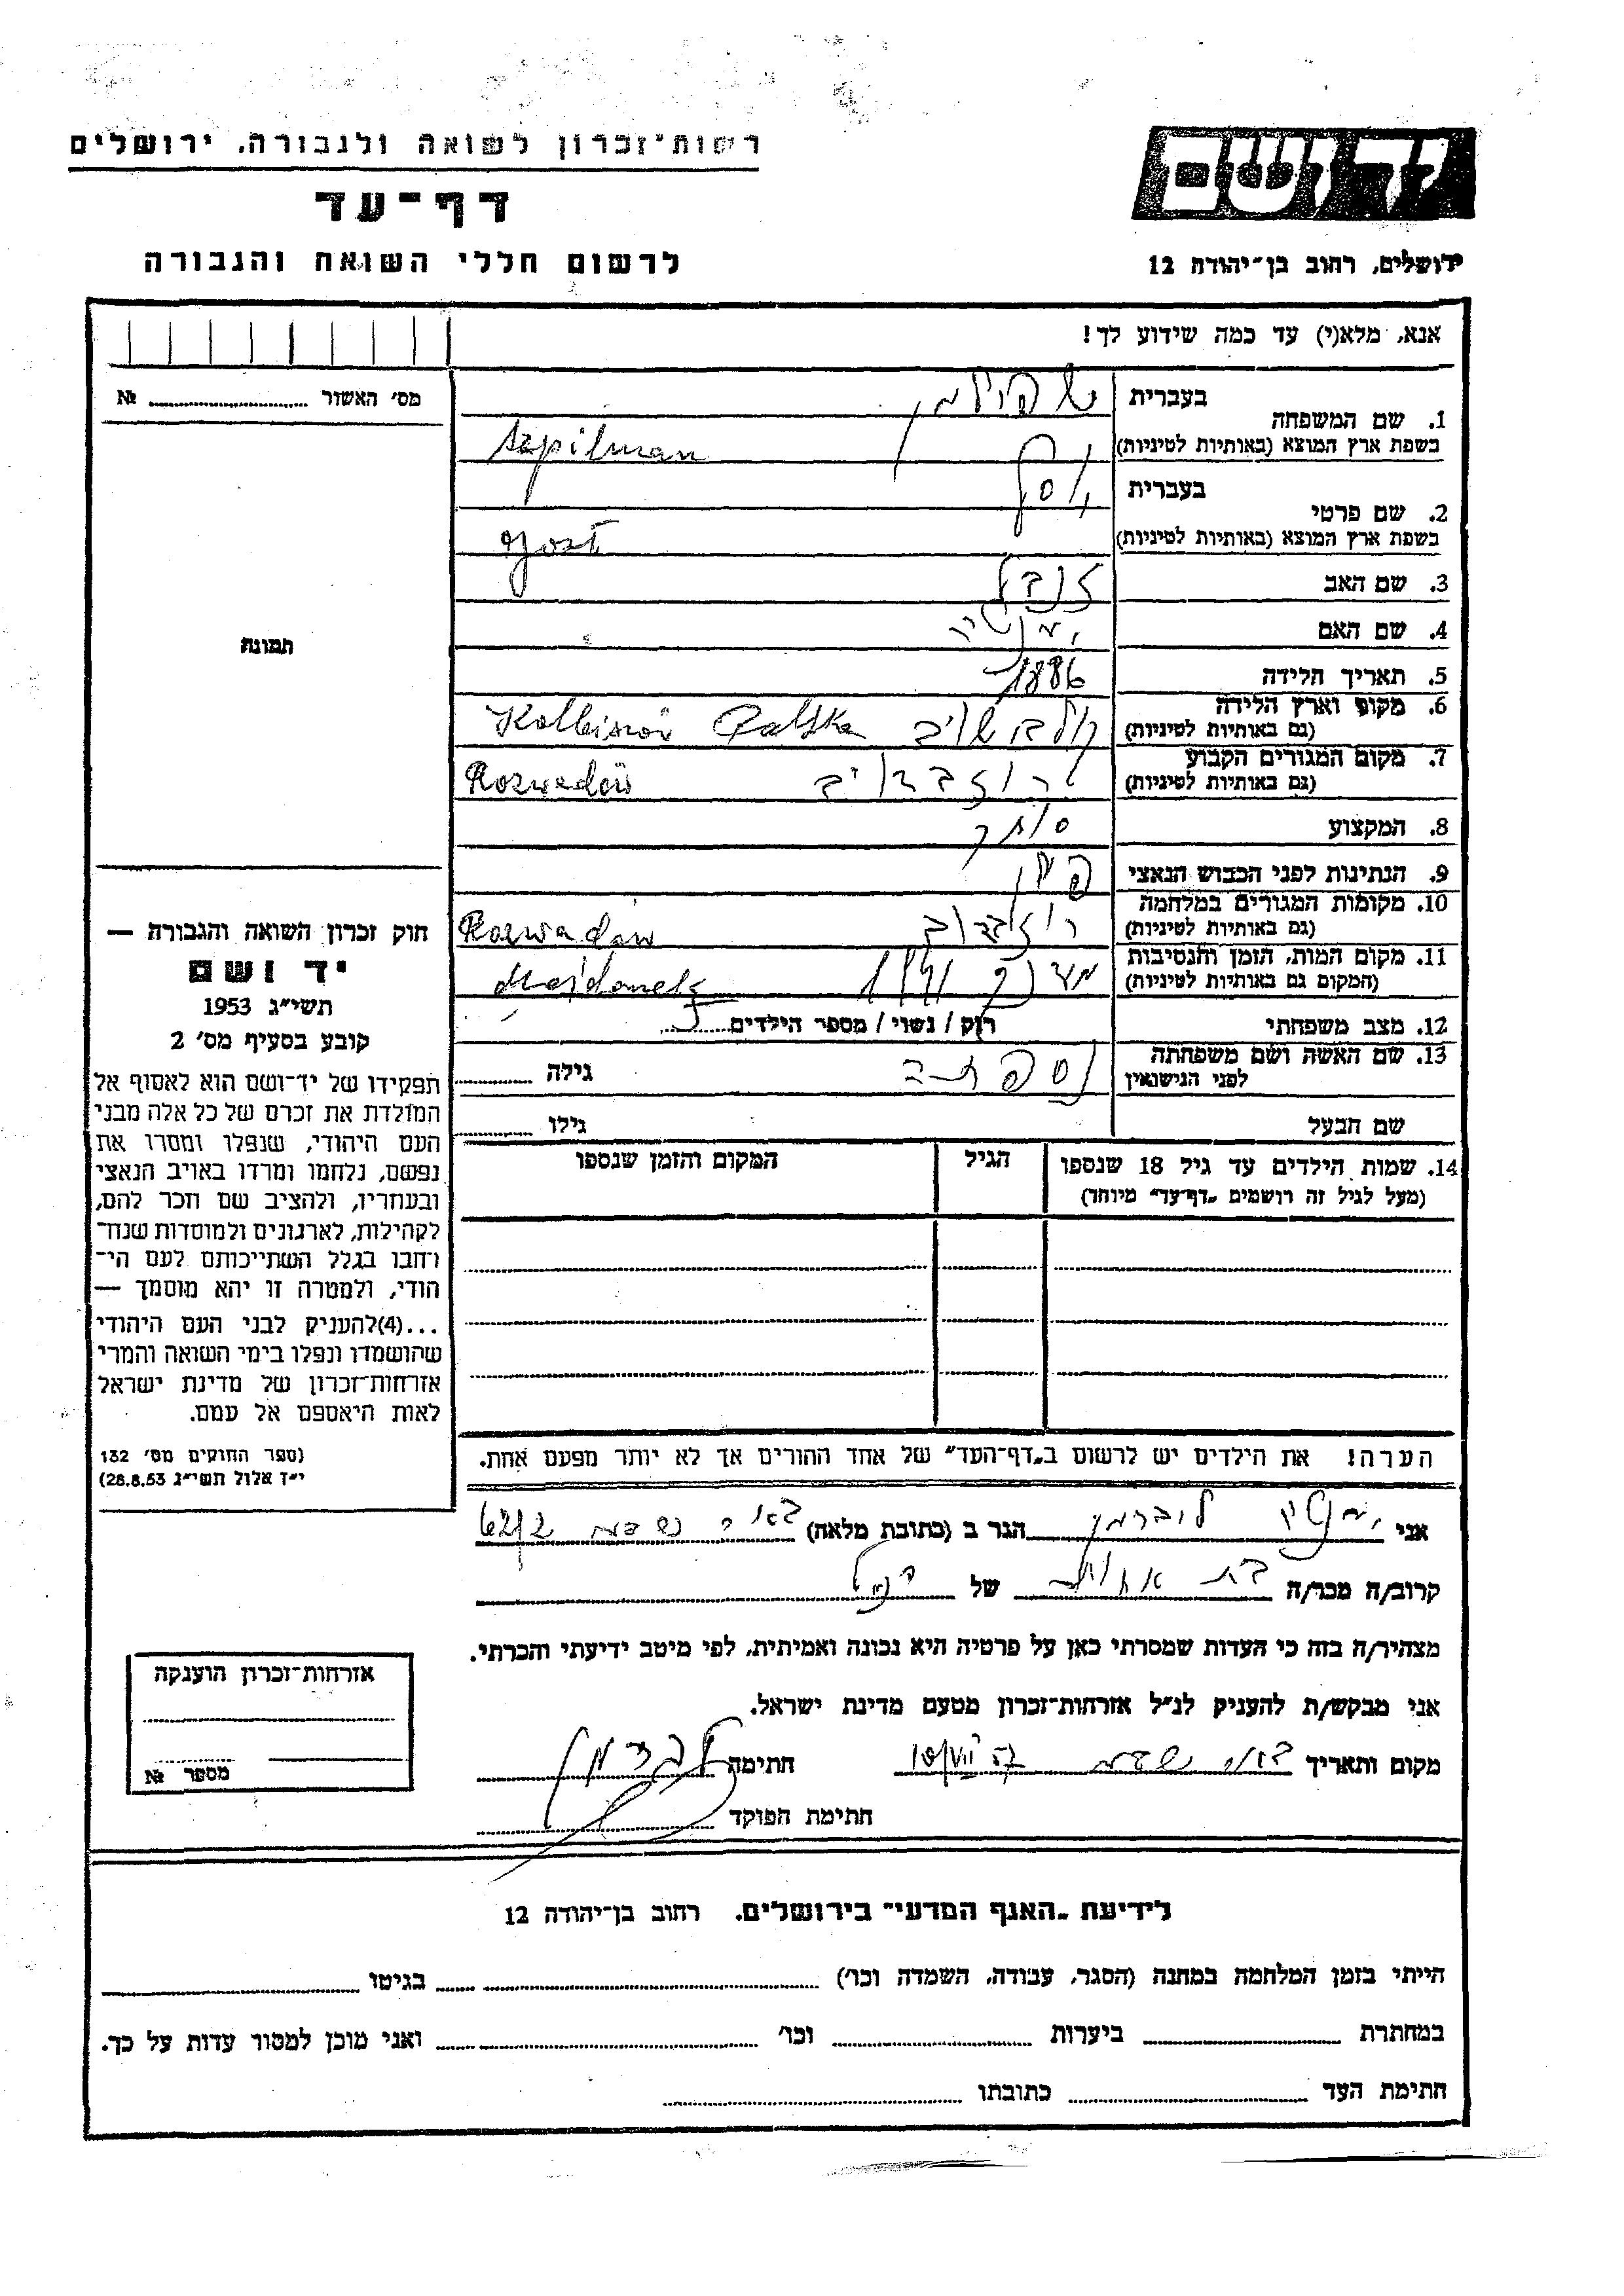 רשות־זכרון לשואה ולגבורה, ירושלים
יד ושם
דף־עד
לרשום חללי השואה והגבורה
ירושלים, רחוב בן־יהודה 12
אנא, מלא(י) עד כמה שידוע לך!
מס׳ האשור № 
1. שם המשפחה
בעברית שפילמן
בשפת ארץ המוצא (באותיות לטיניות) Szpilman
2. שם פרטי
בעברית יוסף
בשפת ארץ המוצא (באותיות לטיניות)
3. שם האב
4. שם האם
5. תאריך הלידה 1886
6. מקום וארץ הלידה
(גם באותיות לטיניות) Polska
7. מקום המגורים הקבוע
(גם באותיות לטיניות) Rozwadów
8. המקצוע סוחר
9. הנתינות לפני הכבוש הנאצי פולין
10. מקומות המגורים במלחמה
(גם באותיות לטיניות) Rozwadow
11. מקום המות, הזמן והנסיבות
(המקום גם באותיות לטיניות) Majdanek
12. מצב משפחתי רוק / נשוי / מספר הילדים
13. שם האשה ושם משפחתה
לפני הנישואין גילה
שם הבעל גילו
14. שמות הילדים עד גיל 18 שנספו
(מעל לגיל זה רושמים „דף־עד״ מיוחד)
הגיל
המקום והזמן שנספו
הערה! את הילדים יש לרשום ב„דף־העד״ של אחד ההורים אך לא יותר מפעם אחת.
תמונה
חוק זכרון השואה והגבורה —
יד ושם
תשי״ג 1953
קובע בסעיף מס׳ 2
תפקידו של יד־ושם הוא לאסוף אל
המולדת את זכרם של כל אלה מבני
העם היהודי, שנפלו ומסרו את
נפשם, נלחמו ומרדו באויב הנאצי
ובעוזריו, ולהציב שם וזכר להם,
לקהילות, לארגונים ולמוסדות שנח־
רחבו בגלל השתייכותם לעם הי־
הודי, ולמטרה זו יהא מוסמך —
...(4)להעניק לבני העם היהודי
שהושמדו ונפלו בימי השואה והמרי
אזרחות־זכרון של מדינת ישראל
לאות היאספם אל עמם.
(ספר החוקים מס׳ 132
י״ז אלול תשי״ג 28.8.53)
אני ליברמן הגר ב (כתובת מלאה) באר שבע
קרוב/ה מכר/ה בת אחות של הנ״ל
מצהיר/ה בזה כי העדות שמסרתי כאן על פרטיה היא נכונה ואמיתית, לפי מיטב ידיעתי והכרתי.
אני מבקש/ת להעניק לנ״ל אזרחות־זכרון מטעם מדינת ישראל.
מקום ותאריך באר שבע חתימה ליברמן
חתימת הפוקד
אזרחות־זכרון הוענקה
מספר №
לידיעת „האגף המדעי״ בירושלים, רחוב בן־יהודה 12
הייתי בזמן המלחמה במחנה (הסגר, עבודה, השמדה וכו׳) בגיטו
במחתרת ביערות וכו׳ ואני מוכן למסור עדות על כך.
חתימת העד כתובתו